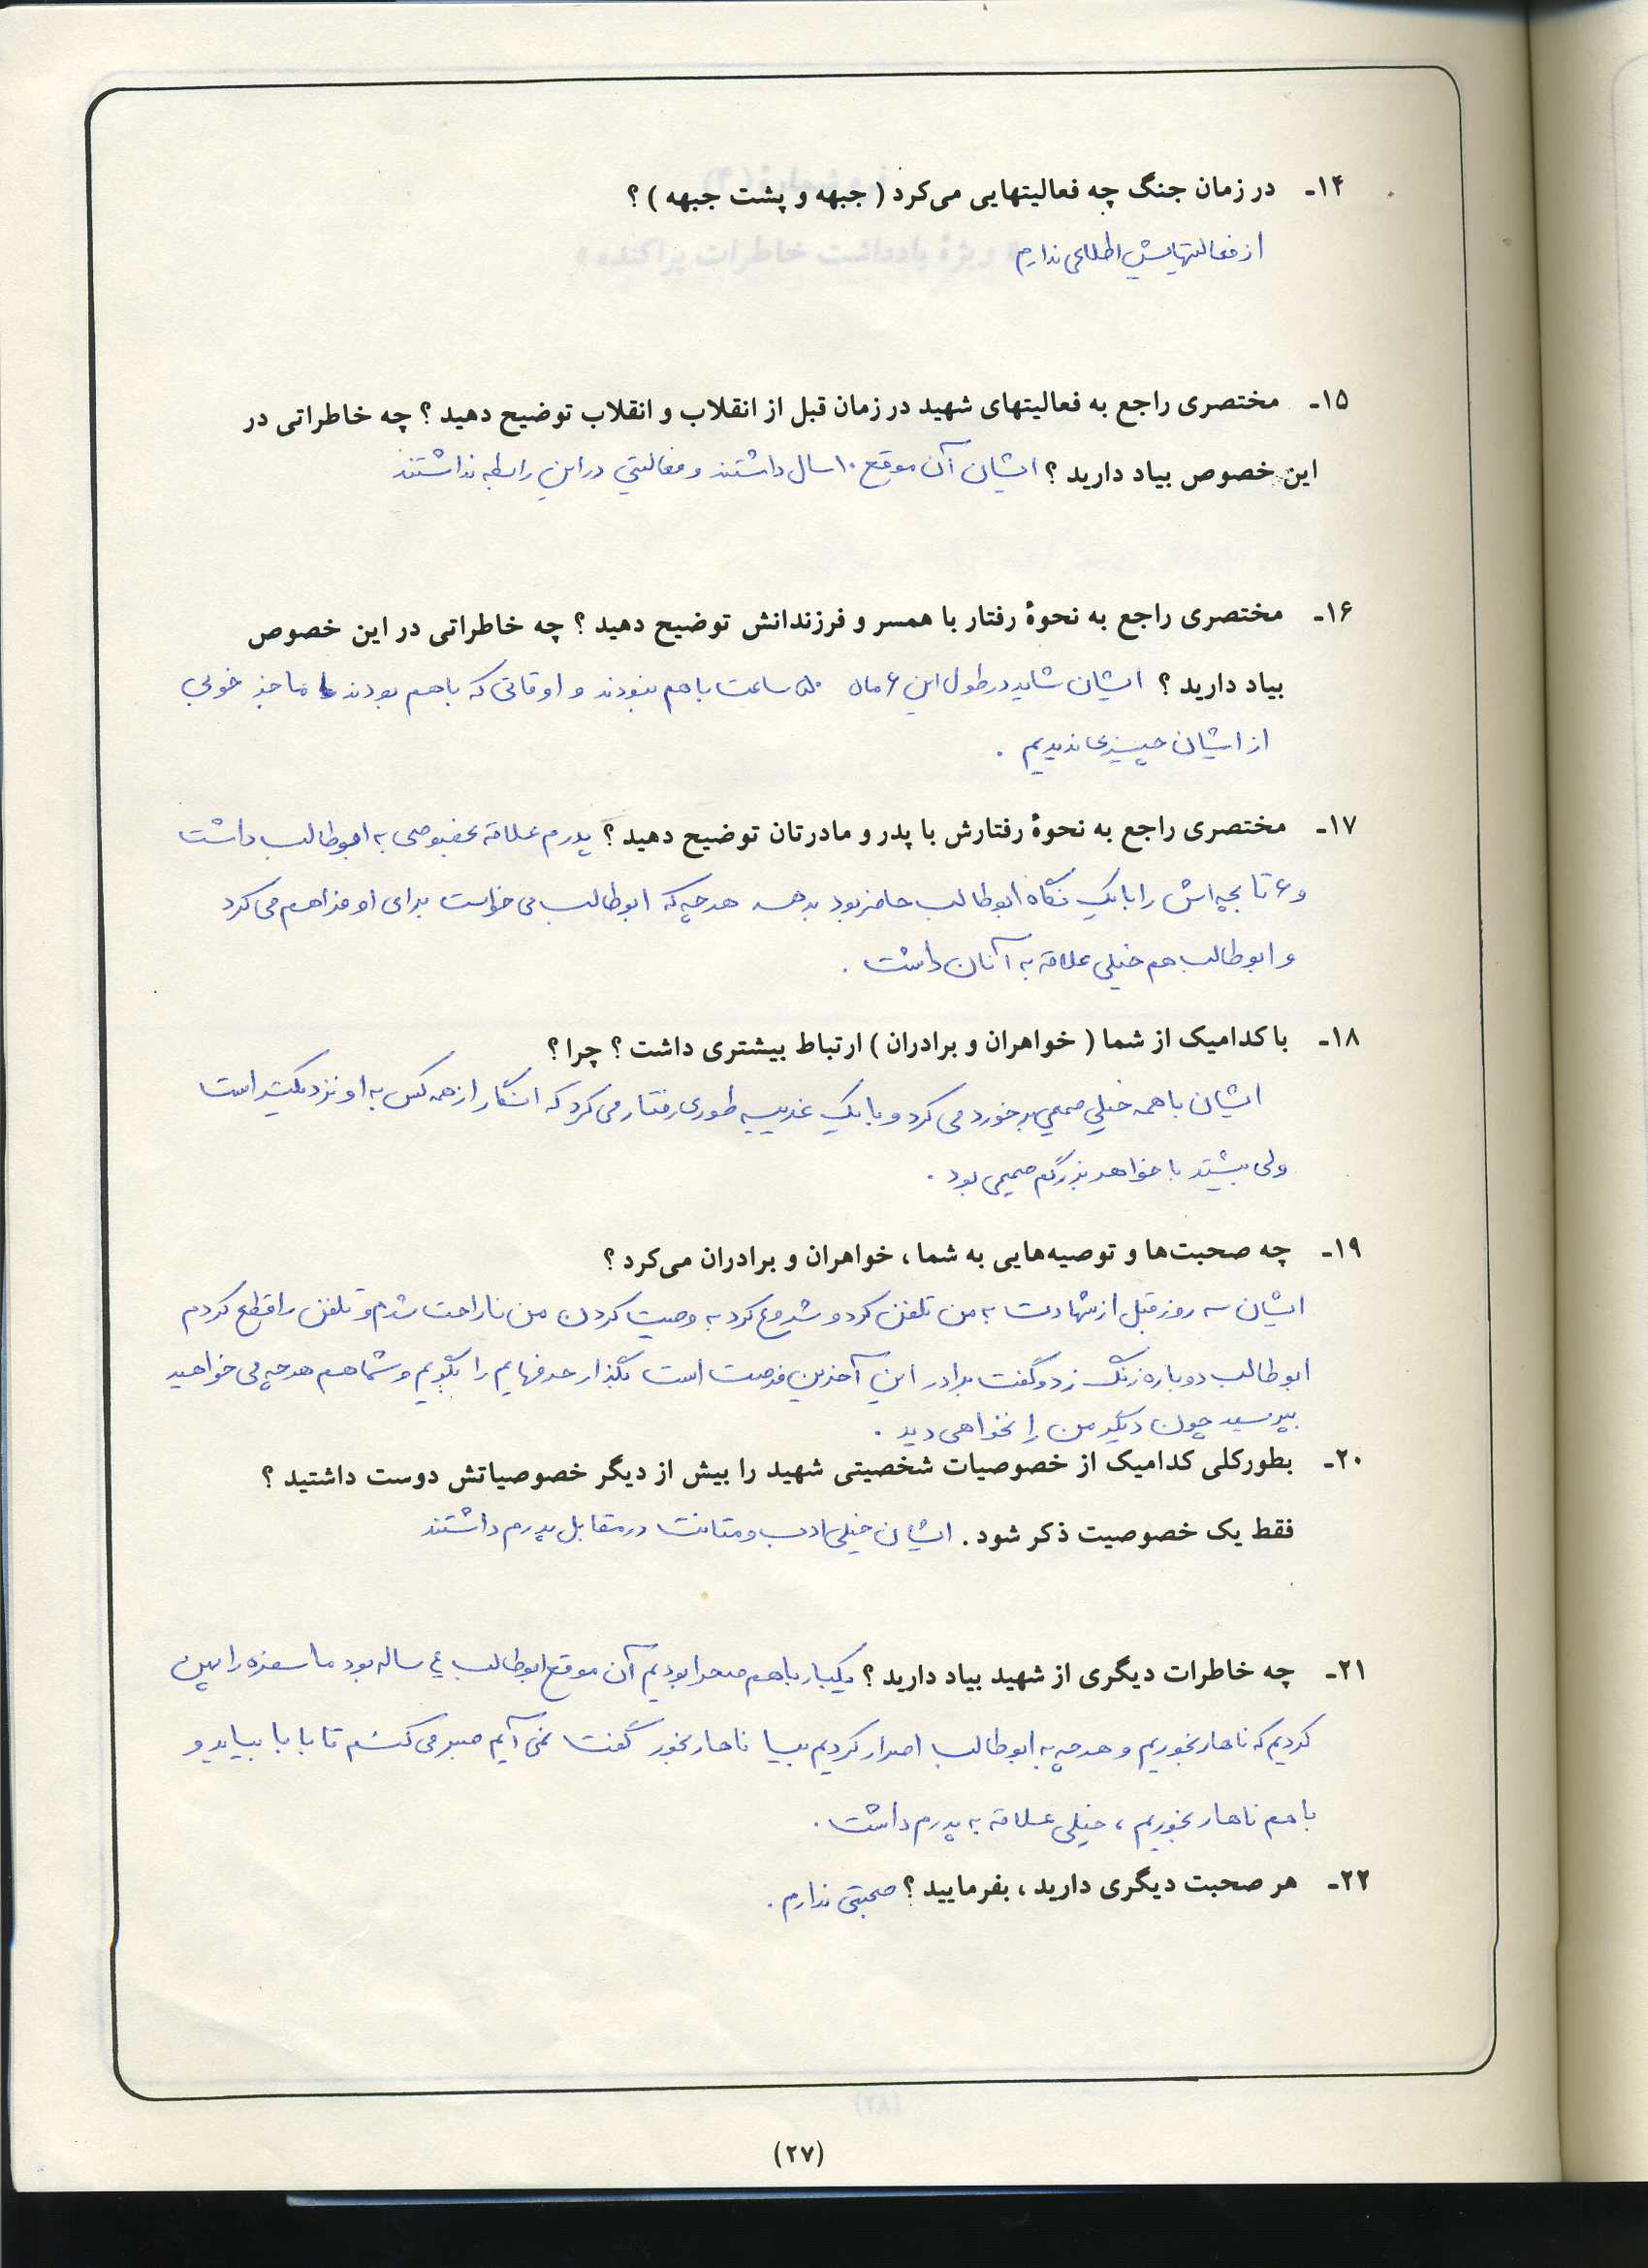 ۱۴ـ در زمان جنگ چه فعالیتهایی می‌کرد ( جبهه و پشت جبهه ) ؟
از فعالیتهایش اطلاعی ندارم
۱۵ـ مختصری راجع به فعالیتهای شهید در زمان قبل از انقلاب و انقلاب توضیح دهید ؟ چه خاطراتی در
این خصوص بیاد دارید ؟ ایشان آن موقع ۱۰ سال داشتند و فعالیتی در این رابطه نداشتند
۱۶ـ مختصری راجع به نحوهٔ رفتار با همسر و فرزندانش توضیح دهید ؟ چه خاطراتی در این خصوص
بیاد دارید ؟ ایشان شاید در طول این ۶ ماه ۵۰ ساعت با هم نبودند و اوقاتی که با هم بودند ما جز خوبی
از ایشان چیزی ندیدیم .
۱۷ـ مختصری راجع به نحوهٔ رفتارش با پدر و مادرتان توضیح دهید ؟ پدرم علاقه بخصوصی به ابوطالب داشت
و ۶ تا بچه اش را با یک نگاه ابوطالب حاضر بود بدهد هرچه که ابوطالب می خواست برای او فراهم می کرد
و ابوطالب هم خیلی علاقه به آنان داشت .
۱۸ـ با کدامیک از شما ( خواهران و برادران ) ارتباط بیشتری داشت ؟ چرا ؟
ایشان با همه خیلی صمیمی برخورد می کرد و با یک غریبه طوری رفتار می کرد که انگار از همه کس به او نزدیکتر است
ولی بیشتر با خواهر بزرگم صمیمی بود .
۱۹ـ چه صحبت‌ها و توصیه‌هایی به شما ، خواهران و برادران می‌کرد ؟
ایشان سه روز قبل از شهادت به من تلفن کرد و شروع کرد به وصیت کردن من ناراحت شدم و تلفن را قطع کردم
ابوطالب دوباره زنگ زد و گفت برادر این آخرین فرصت است بگذار حرفهایم را بگویم و شما هم هرچه می خواهید
بپرسید چون دیگر من را نخواهی دید .
۲۰ـ بطورکلی کدامیک از خصوصیات شخصیتی شهید را بیش از دیگر خصوصیاتش دوست داشتید ؟
فقط یک خصوصیت ذکر شود . ایشان خیلی ادب و متانت در مقابل پدرم داشتند
۲۱ـ چه خاطرات دیگری از شهید بیاد دارید ؟ یکبار با هم صحرا بودیم آن موقع ابوطالب ۴ ساله بود ما سفره را پهن
کردیم که ناهار بخوریم و هرچه به ابوطالب اصرار کردیم بیا ناهار بخور گفت نمی آیم صبر می کنم تا بابا بیاید و
با هم ناهار بخوریم ، خیلی علاقه به پدرم داشت .
۲۲ـ هر صحبت دیگری دارید ، بفرمایید ؟ صحبتی ندارم .
(۲۷)